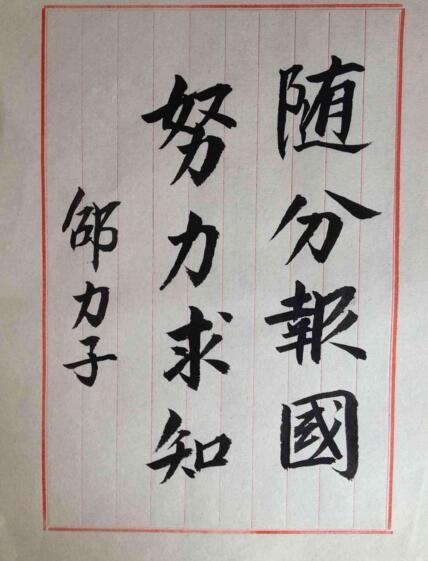 随分報國
努力求知
邵力子